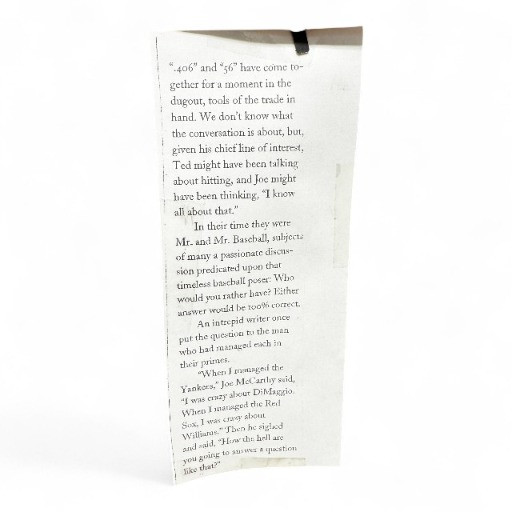 “.406” and “56” have come to-
gether for a moment in the
dugout, tools of the trade in
hand. We don’t know what
the conversation is about, but,
given his chief line of interest,
Ted might have been talking
about hitting, and Joe might
have been thinking, “I know
all about that.”
In their time they were
Mr. and Mr. Baseball, subjects
of many a passionate discus-
sion predicated upon that
timeless baseball poser: Who
would you rather have? Either
answer would be 100% correct.
An intrepid writer once
put the question to the man
who had managed each in
their primes.
“When I managed the
Yankees,” Joe McCarthy said,
“I was crazy about DiMaggio.
When I managed the Red
Sox, I was crazy about
Williams.” Then he sighed
and said, “How the hell are
you going to answer a question
like that?”